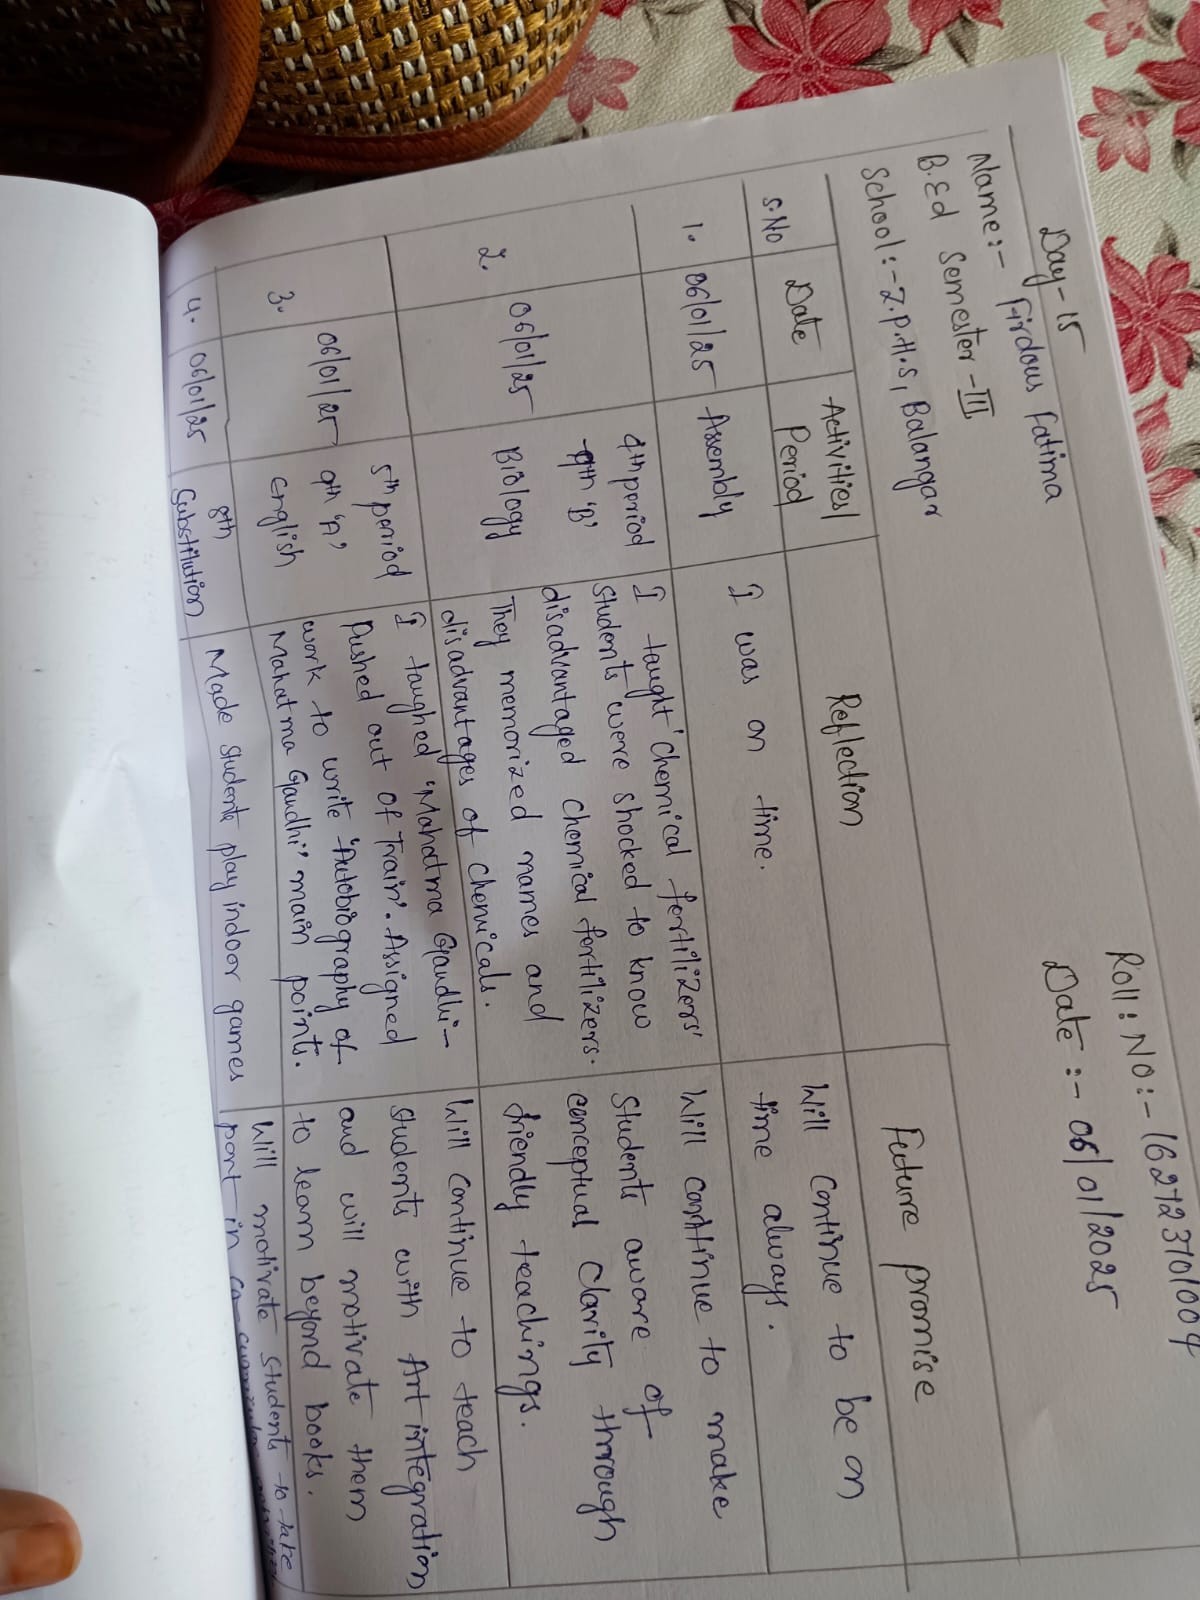 Day-15
Name:- Firdous Fatima
Roll: No:-
B.Ed Semester-III
Date :- 06/01/2025
School:-Z.P.H.S, Balangar
S.No
Date
Activities/
Period
Reflection
Future promise
1.
06/01/25
Assembly
I was on time.
Will continue to be on
time always.
2.
06/01/25
4th period
9th 'B'
Biology
I taught 'chemical fertilizers'
students were shocked to know
disadvantaged chemical fertilizers.
They memorized names and
disadvantages of chemicals.
Will continue to make
students aware of
conceptual clarity through
friendly teachings.
3.
06/01/25
5th period
9th 'A'
English
I taughed 'Mahatma Gandhi-
Pushed out of Train'. Assigned
work to write 'Autobiography of
Mahatma Gandhi" main points.
Will continue to teach
students with Art integration
and will motivate them
to learn beyond books.
4.
06/01/25
8th
Substitution
Made students play indoor games
Will motivate students to take
part in